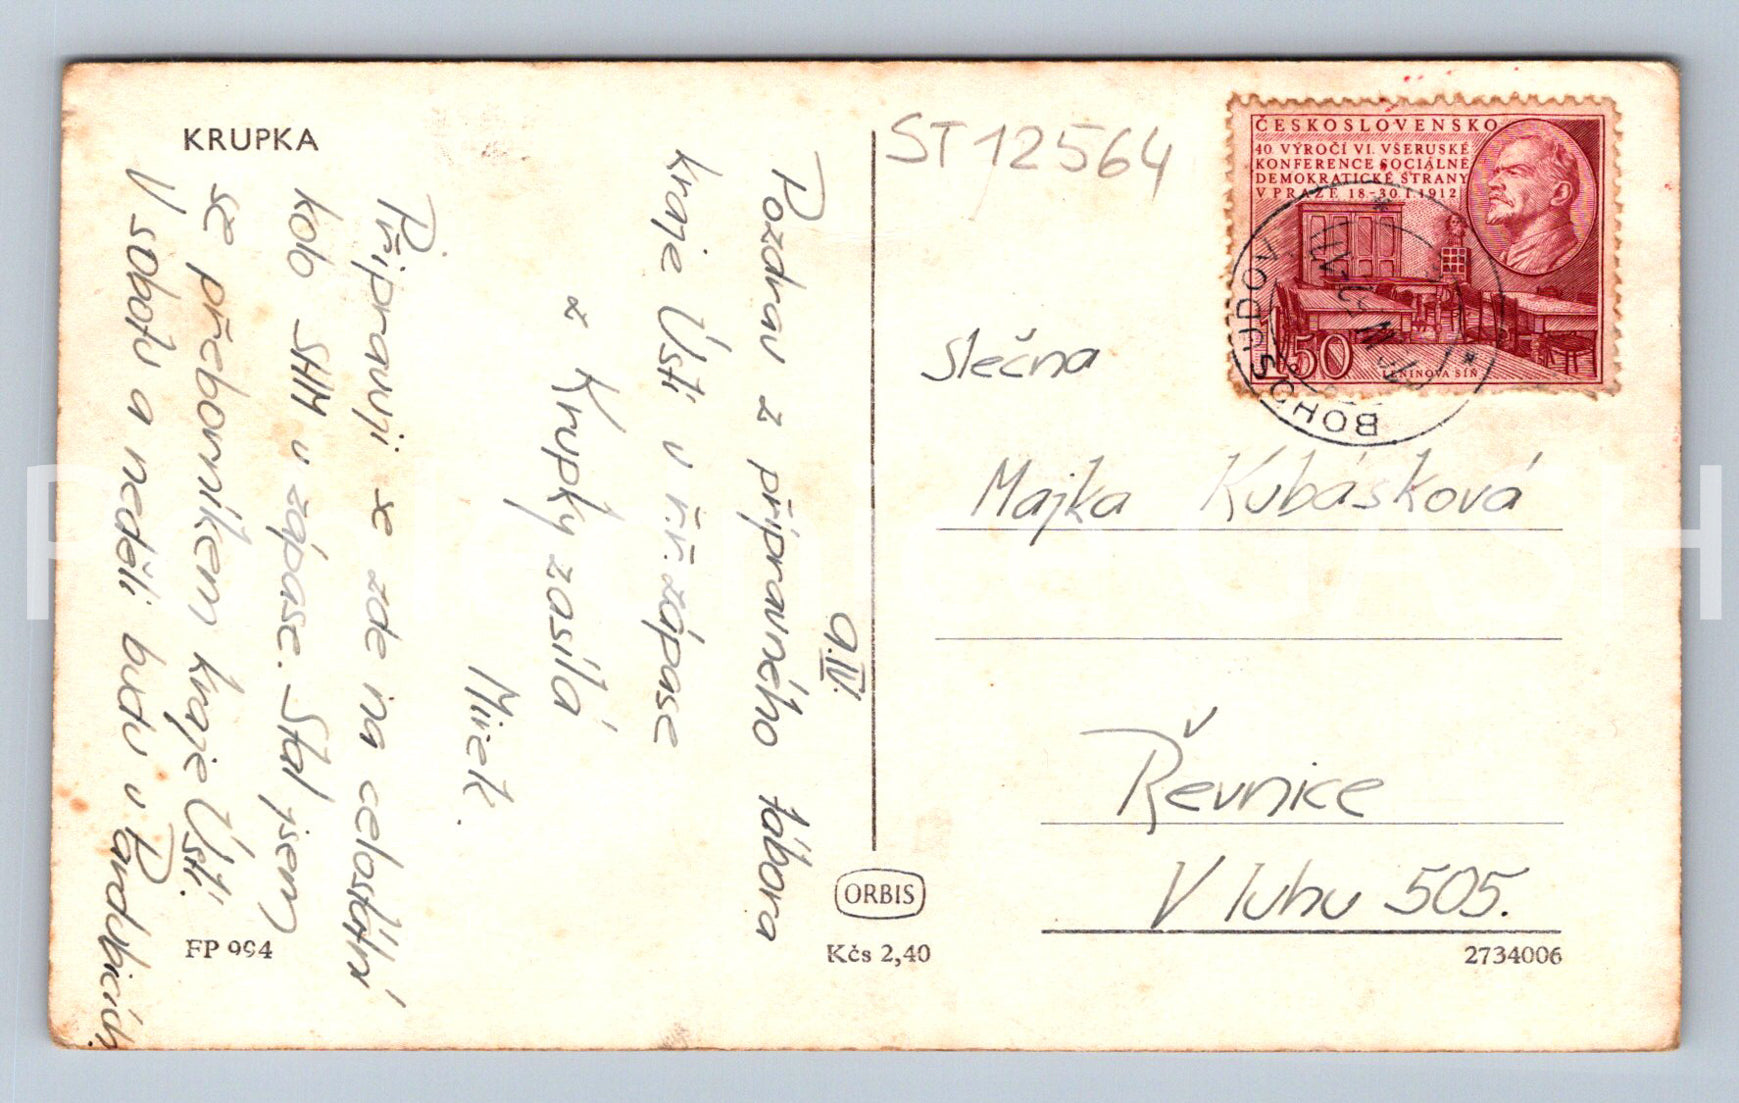 KRUPKA
ST 12564
ČESKOSLOVENSKO
40. VÝROČÍ VI. VŠERUSKÉ
KONFERENCE SOCIÁLNĚ
DEMOKRATICKÉ STRANY
V PRAZE 18-30.I.1912
1,50
LENINOVA SÍŇ
BOHOSUDOV
9.IV.
Pozdrav z přípravného tábora
kraje Ústí v ř.ř. zápase
z Krupky zasílá
Mirek.
Připravuji se zde na celostátní
kolo SHM v zápase. Stal jsem
se přeborníkem kraje Ústí.
V sobotu a neděli budu v Pardubicích.
Slečna
Majka Kubásková
Řevnice
V luhu 505.
FP 994
ORBIS
Kčs 2,40
2734006